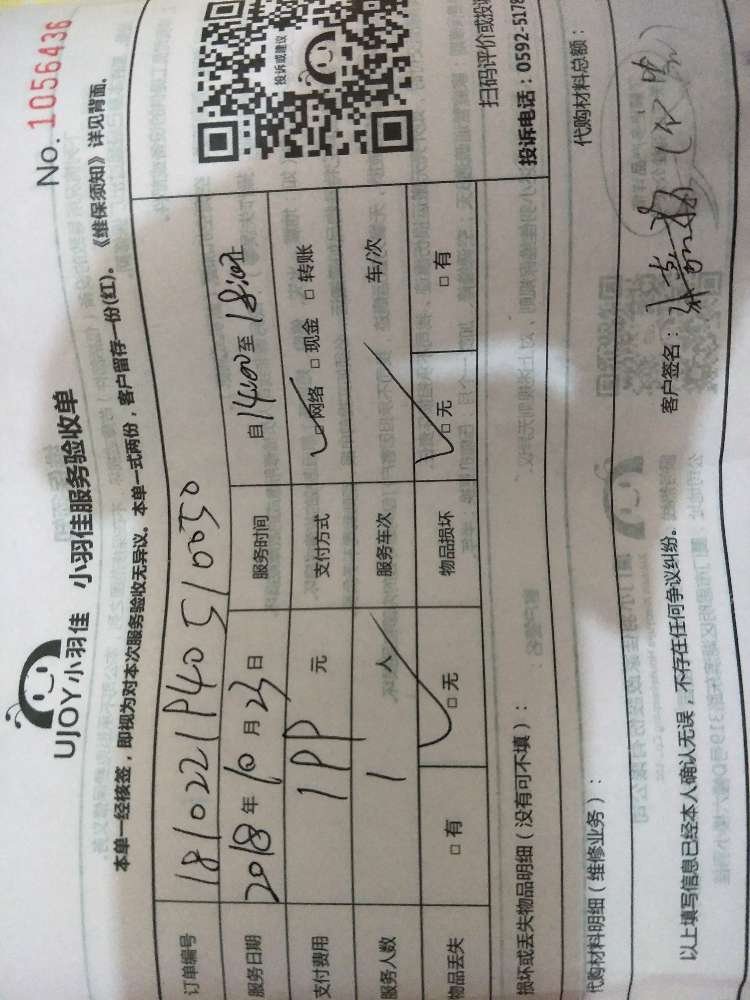 No. 1056436
UJOY小羽佳 小羽佳服务验收单
本单一经核签，即视为对本次服务验收无异议。本单一式两份，客户留存一份(红)。《维保须知》详见背面。
订单编号 1810221P40510050
服务日期 2018年10月23日 服务时间 自1400至18:00止
支付费用 199元 支付方式 □网络 □现金 □转账
服务人数 1人 服务车次 车/次
物品丢失 □有 □无 物品损坏 □无 □有
投诉或建议
扫码评价或投诉
投诉电话：0592-5178
损坏或丢失物品明细（没有可不填）：
代购材料明细（维修业务）： 代购材料总额：
以上填写信息已经本人确认无误，不存在任何争议纠纷。 客户签名：